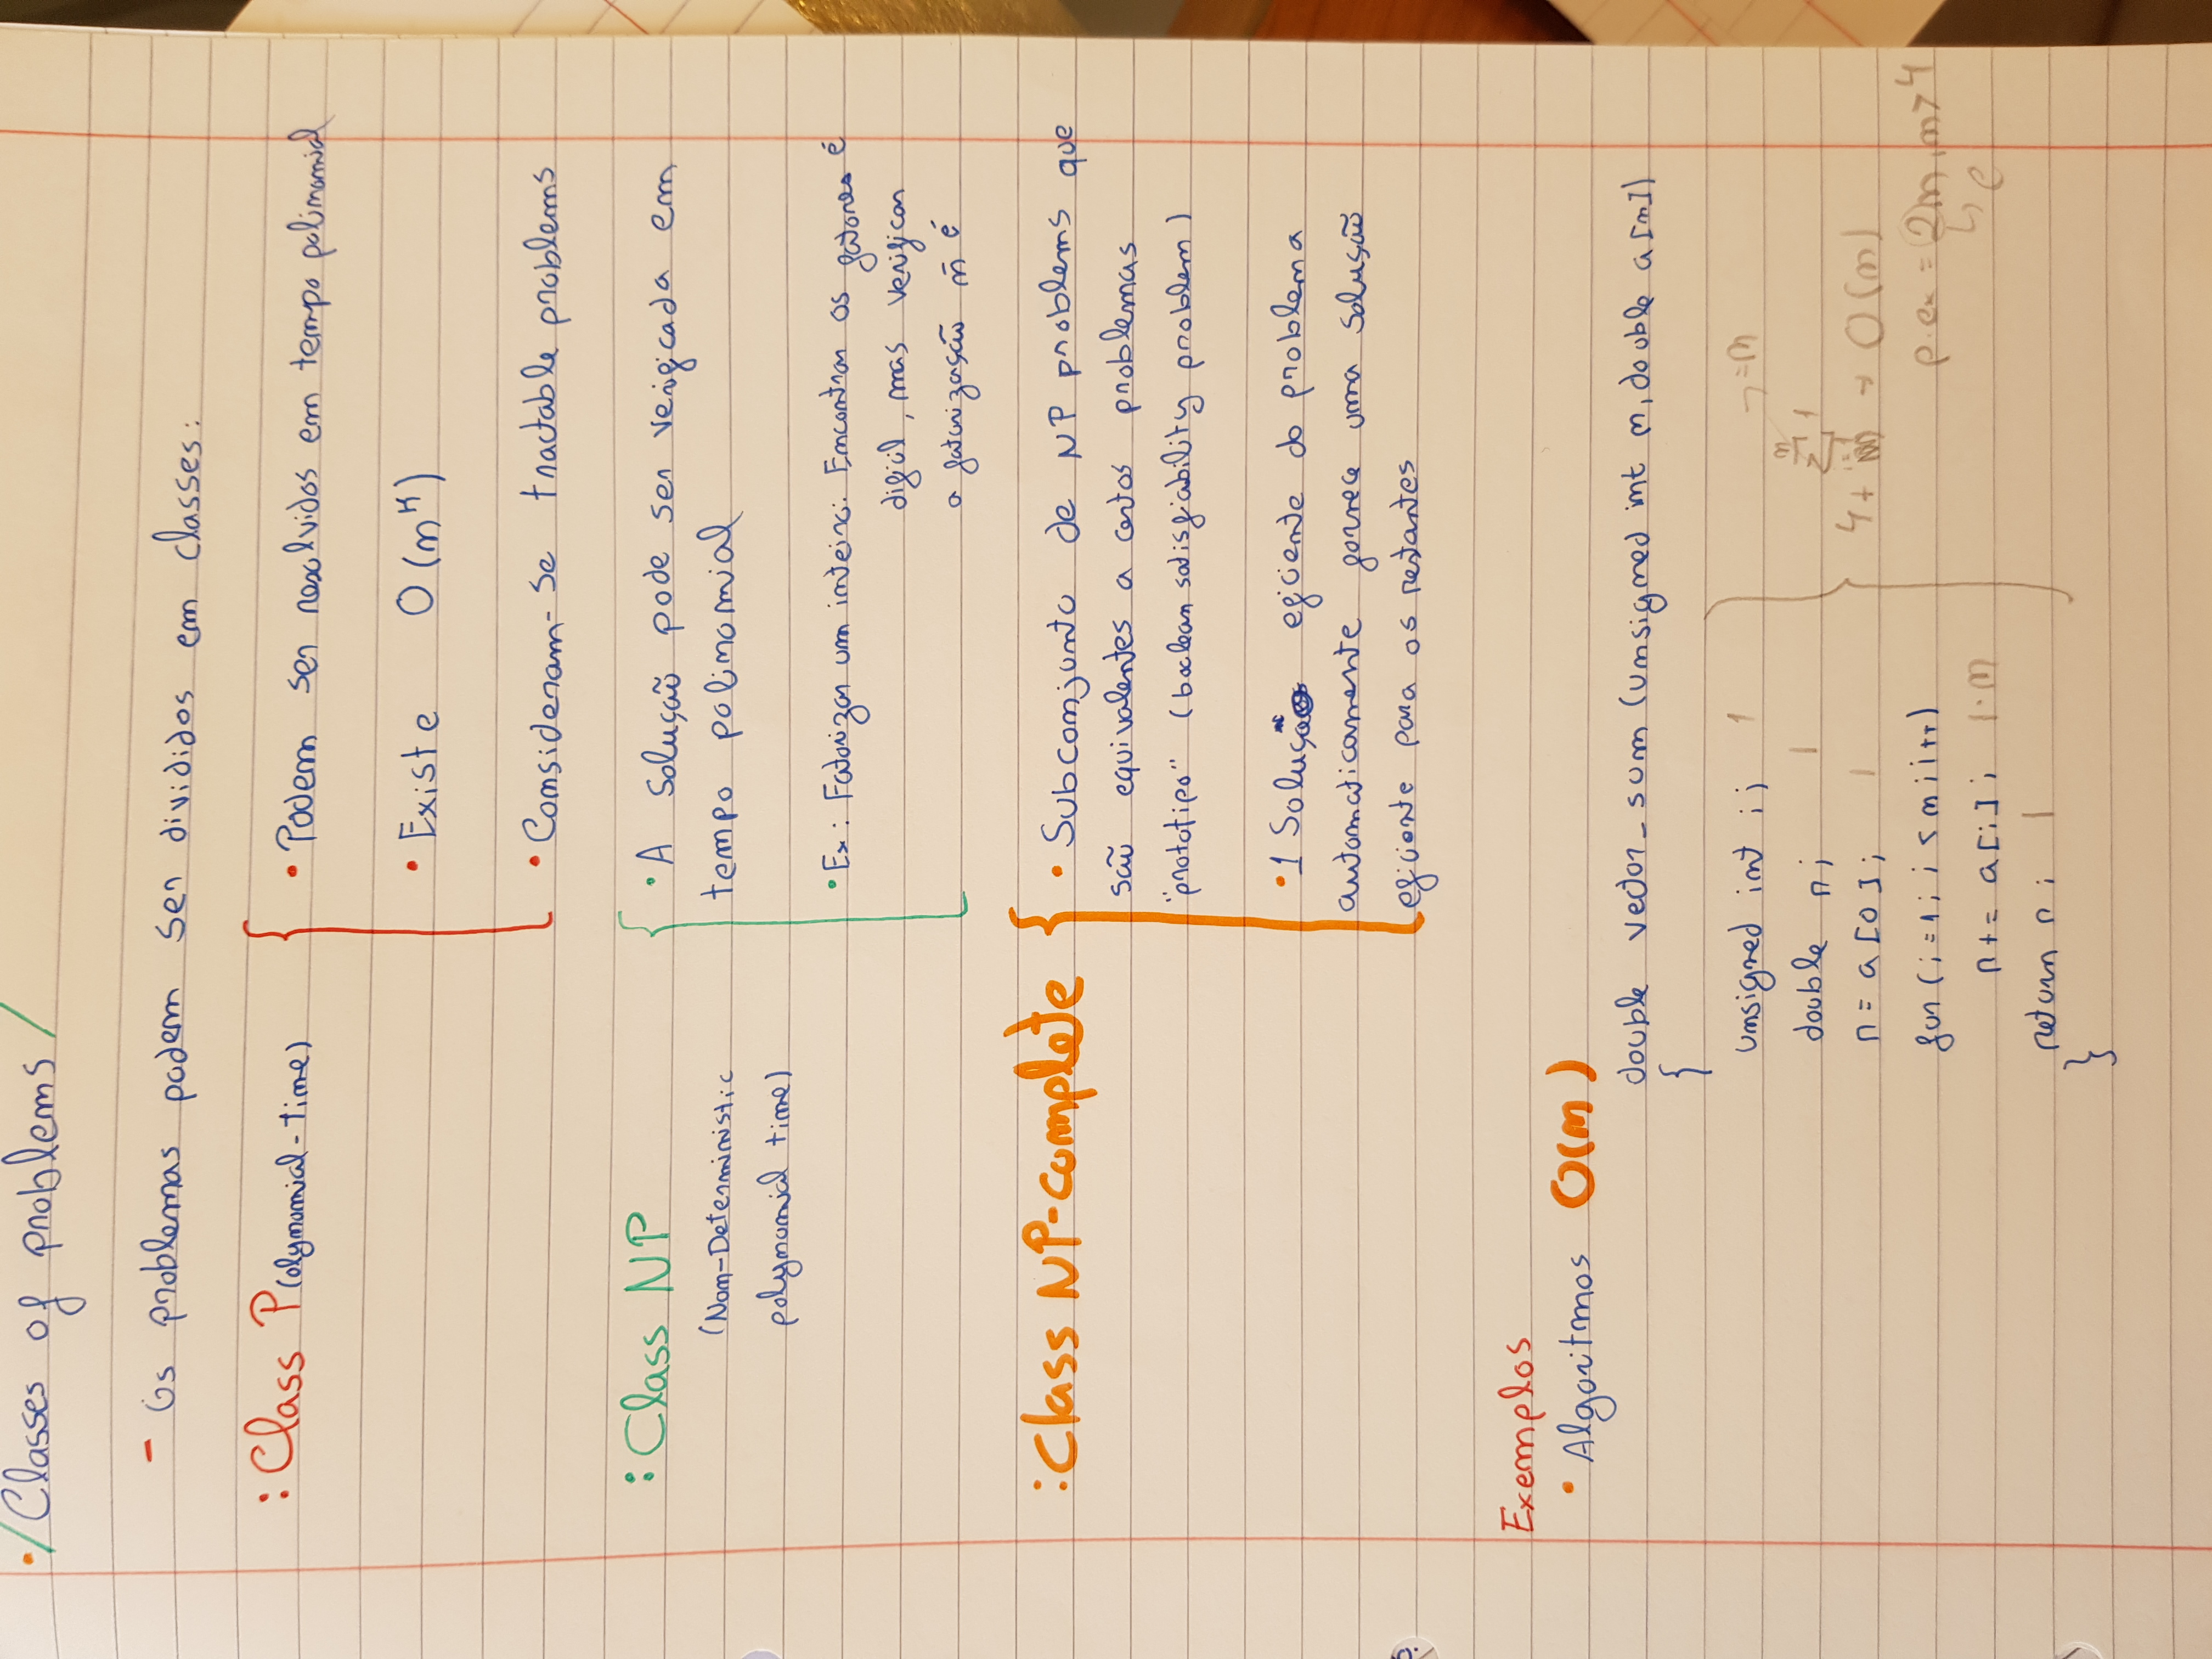 •/Classes of problems/
- Os problemas podem ser divididos em classes:
: Class P(olynomial-time)
• Podem ser resolvidos em tempo polinomial
• Existe O(n^k)
• Consideram-se tractable problems
: Class NP
(Non-Deterministic
polynomial time)
• A solução pode ser verificada em
tempo polinomial
• Ex: Fatorizar um inteiro: Encontrar os fatores é
difícil, mas verificar
a fatorização ñ é
: Class NP-complete
• Subconjunto de NP problems que
são equivalentes a certos problemas
"prototipo" (boolean satisfiability problem)
• 1 Solução eficiente do problema
automaticamente fornece uma solução
eficiente para os restantes
Exemplos
• Algoritmos O(n)
double vector_sum (unsigned int n, double a[n])
{
unsigned int i; 1
double r; 1
r = a[0]; 1
for (i=1; i < n; i++)
r += a[i]; 1·n
return r; 1
}
→ =n
4 + n∑i=1 1 → O(n)
p.ex = 2n, n>4
↳ C